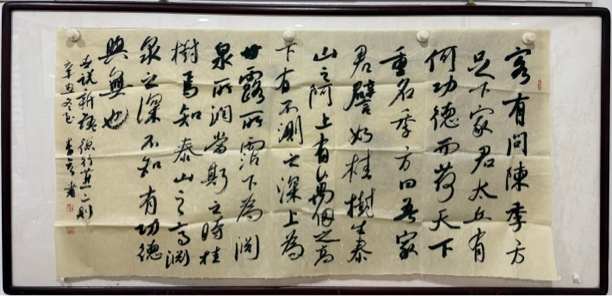 客有問陳季方
足下家君太丘有
何功德而荷天下
重名季方曰吾家
君譬如桂樹生泰
山之阿上有萬仞之高
下有不測之深上為
甘露所霑下為淵
泉所潤當斯之時桂
樹焉知泰山之高淵
泉之深不知有功德
與無也
世說新語德行第一則
辛丑冬月
書